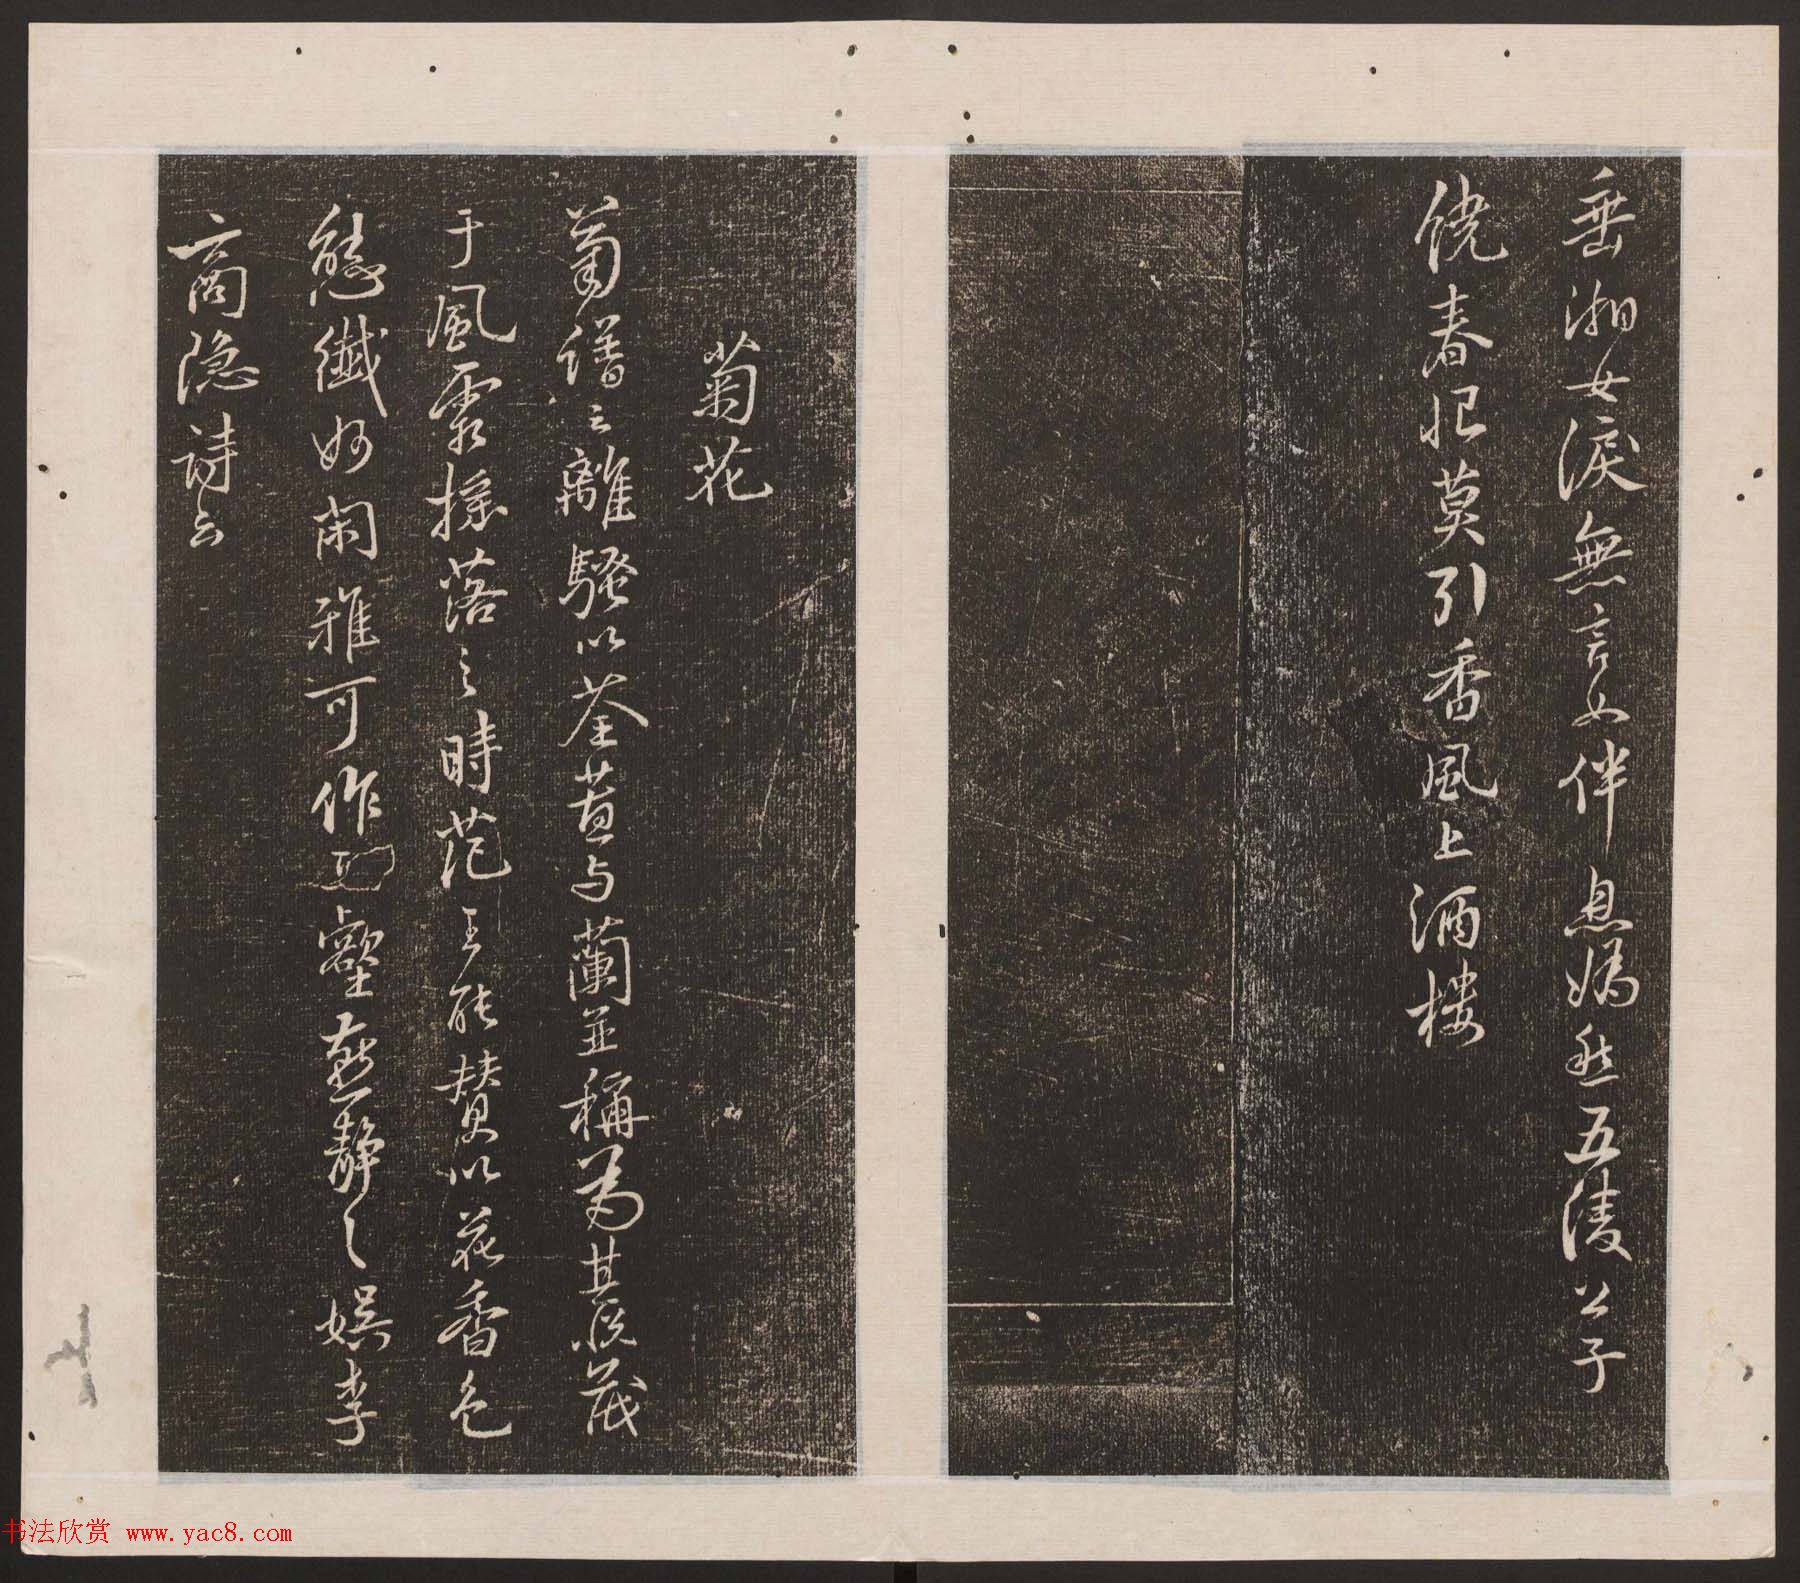 垂湘女淚無言如伴息媯愁五陵公子
饒春恨莫引香風上酒樓
菊花
菊譜云離騷以荃与蘭並稱為其茂
于風霜搖落之時范至能贊以花香色
態纖妙閑雅可作丘壑燕靜之娛李
商隱詩云
书法欣赏 www.yac8.com